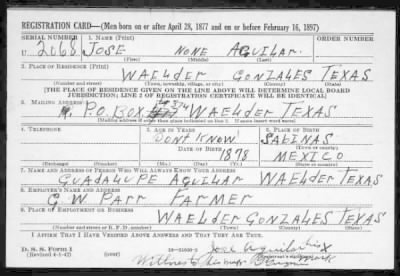 REGISTRATION CARD—(Men born on or after April 28, 1877 and on or before February 16, 1897)
SERIAL NUMBER 1. NAME (Print) ORDER NUMBER
U 2068 JOSE NONE AGUILAR.
(First) (Middle) (Last)
2. PLACE OF RESIDENCE (Print)
WAELDER GONZALES TEXAS
(Number and street) (Town, township, village, or city) (County) (State)
[THE PLACE OF RESIDENCE GIVEN ON THE LINE ABOVE WILL DETERMINE LOCAL BOARD
JURISDICTION; LINE 2 OF REGISTRATION CERTIFICATE WILL BE IDENTICAL]
3. MAILING ADDRESS
P.O. BOX 74 WAELDER TEXAS
[Mailing address if other than place indicated on line 2. If same insert word same]
4. TELEPHONE 5. AGE IN YEARS 6. PLACE OF BIRTH
DONT KNOW SALINAS
DATE OF BIRTH (Town or county)
1878 MEXICO
(Exchange) (Number) (Mo.) (Day) (Yr.) (State or country)
7. NAME AND ADDRESS OF PERSON WHO WILL ALWAYS KNOW YOUR ADDRESS
GUADALUPE AGUILAR WAELDER TEXAS
8. EMPLOYER'S NAME AND ADDRESS
G. W. PARR FARMER
9. PLACE OF EMPLOYMENT OR BUSINESS
WAELDER GONZALES TEXAS
(Number and street or R. F. D. number) (Town) (County) (State)
I AFFIRM THAT I HAVE VERIFIED ABOVE ANSWERS AND THAT THEY ARE TRUE.
D. S. S. Form 1
(Revised 4-1-42) (over) Jose Aguilar X
Witness to his mark